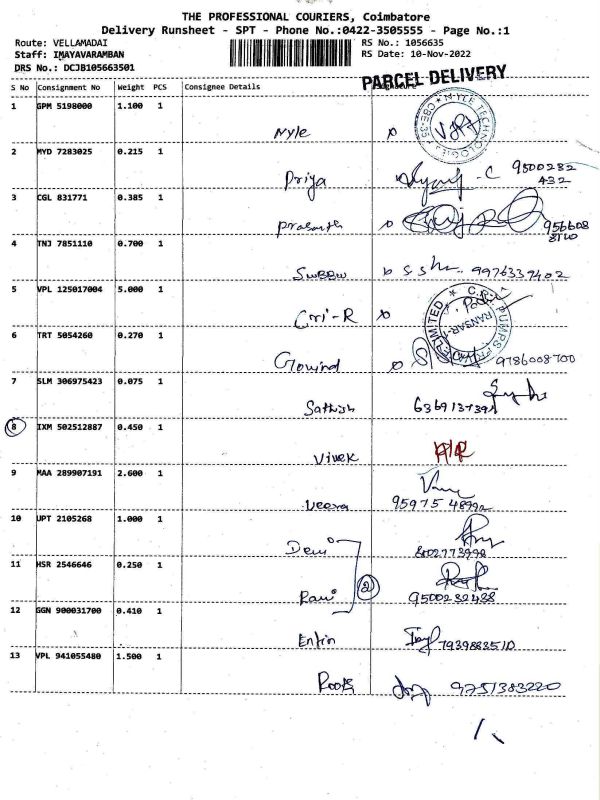 THE PROFESSIONAL COURIERS, Coimbatore
Delivery Runsheet - SPT - Phone No.:0422-3505555 - Page No.:1
Route: VELLAMADAI RS No.: 1056635
Staff: IMAYAVARAMBAN RS Date: 10-Nov-2022
DRS No.: DCJB105663501
PARCEL DELIVERY
S No Consignment No Weight PCS Consignee Details
1 GPM 5198000 1.100 1
Nyle
2 MYD 7283025 0.215 1
Priya 9500232
432
3 CGL 831771 0.385 1
Prasanth 956608
4 TNJ 7851110 0.700 1
9976337402
5 VPL 125017004 5.000 1
Cri-R
6 TRT 5054260 0.270 1
Govind 9786008700
7 SLM 306975423 0.075 1
Sathish
8 IXM 502512887 0.450 1
Vivek
9 MAA 289907191 2.600 1
Veera 95975 48992
10 UPT 2105268 1.000 1
Devi
11 HSR 2546646 0.250 1
Ravi 2 9500232488
12 GGN 900031700 0.410 1
13 VPL 941055480 1.500 1
Roots 9751383220